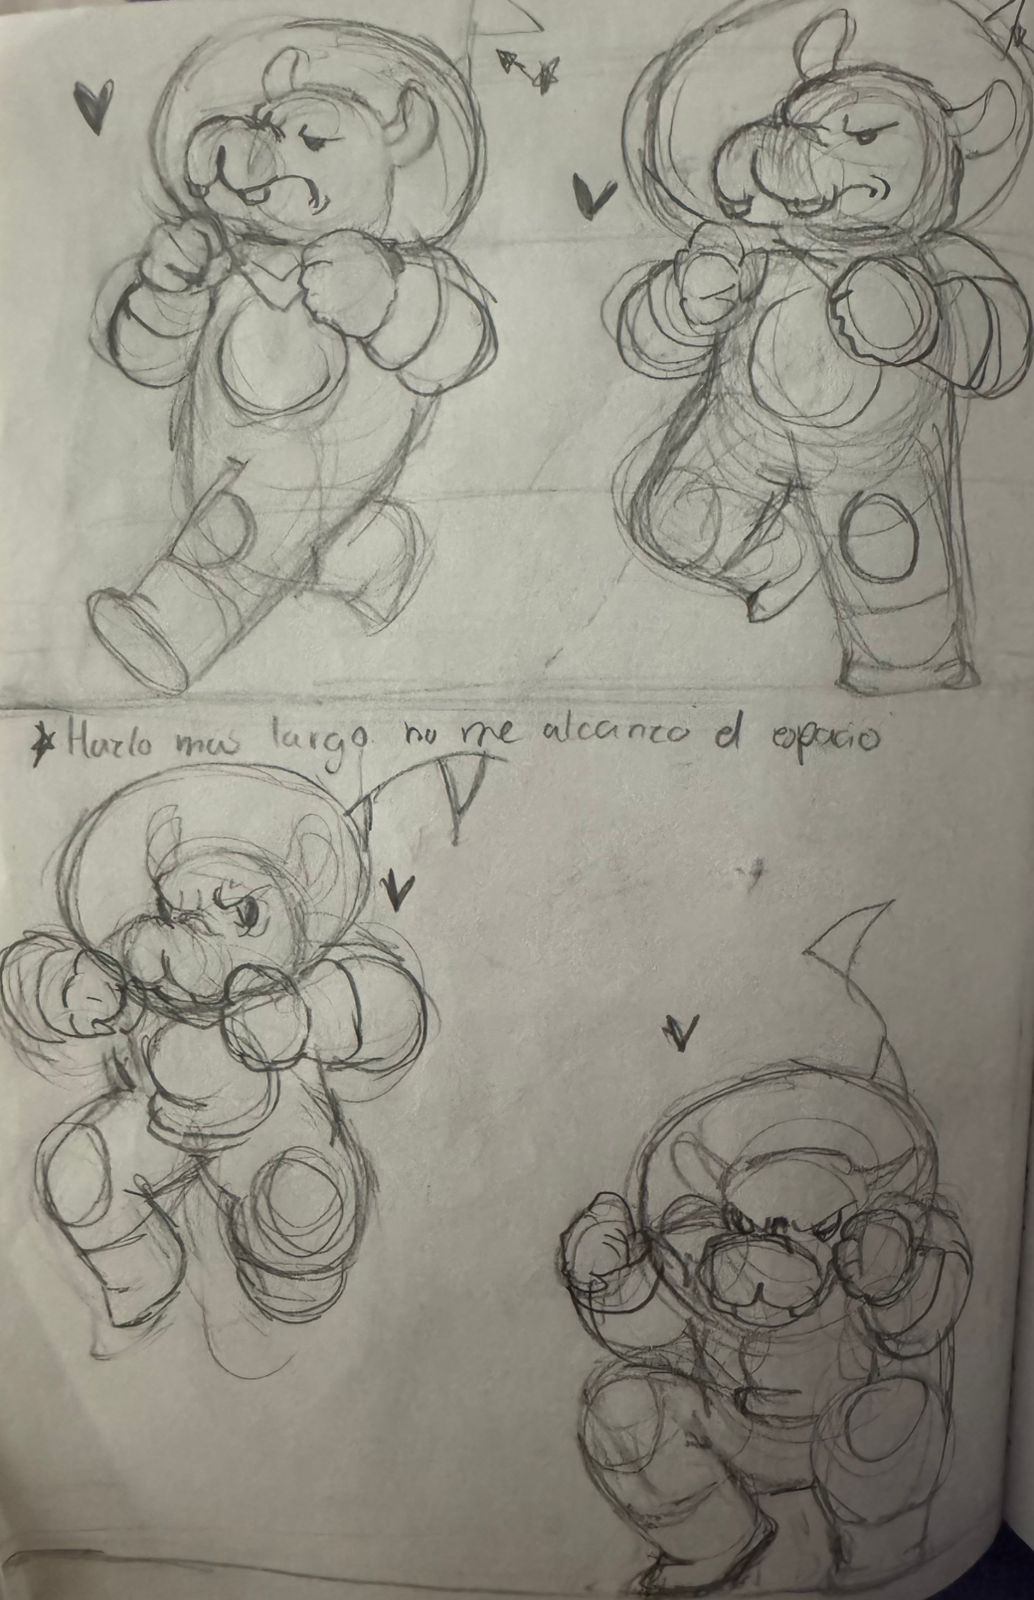 * Hazlo mas largo no me alcanzo el espacio